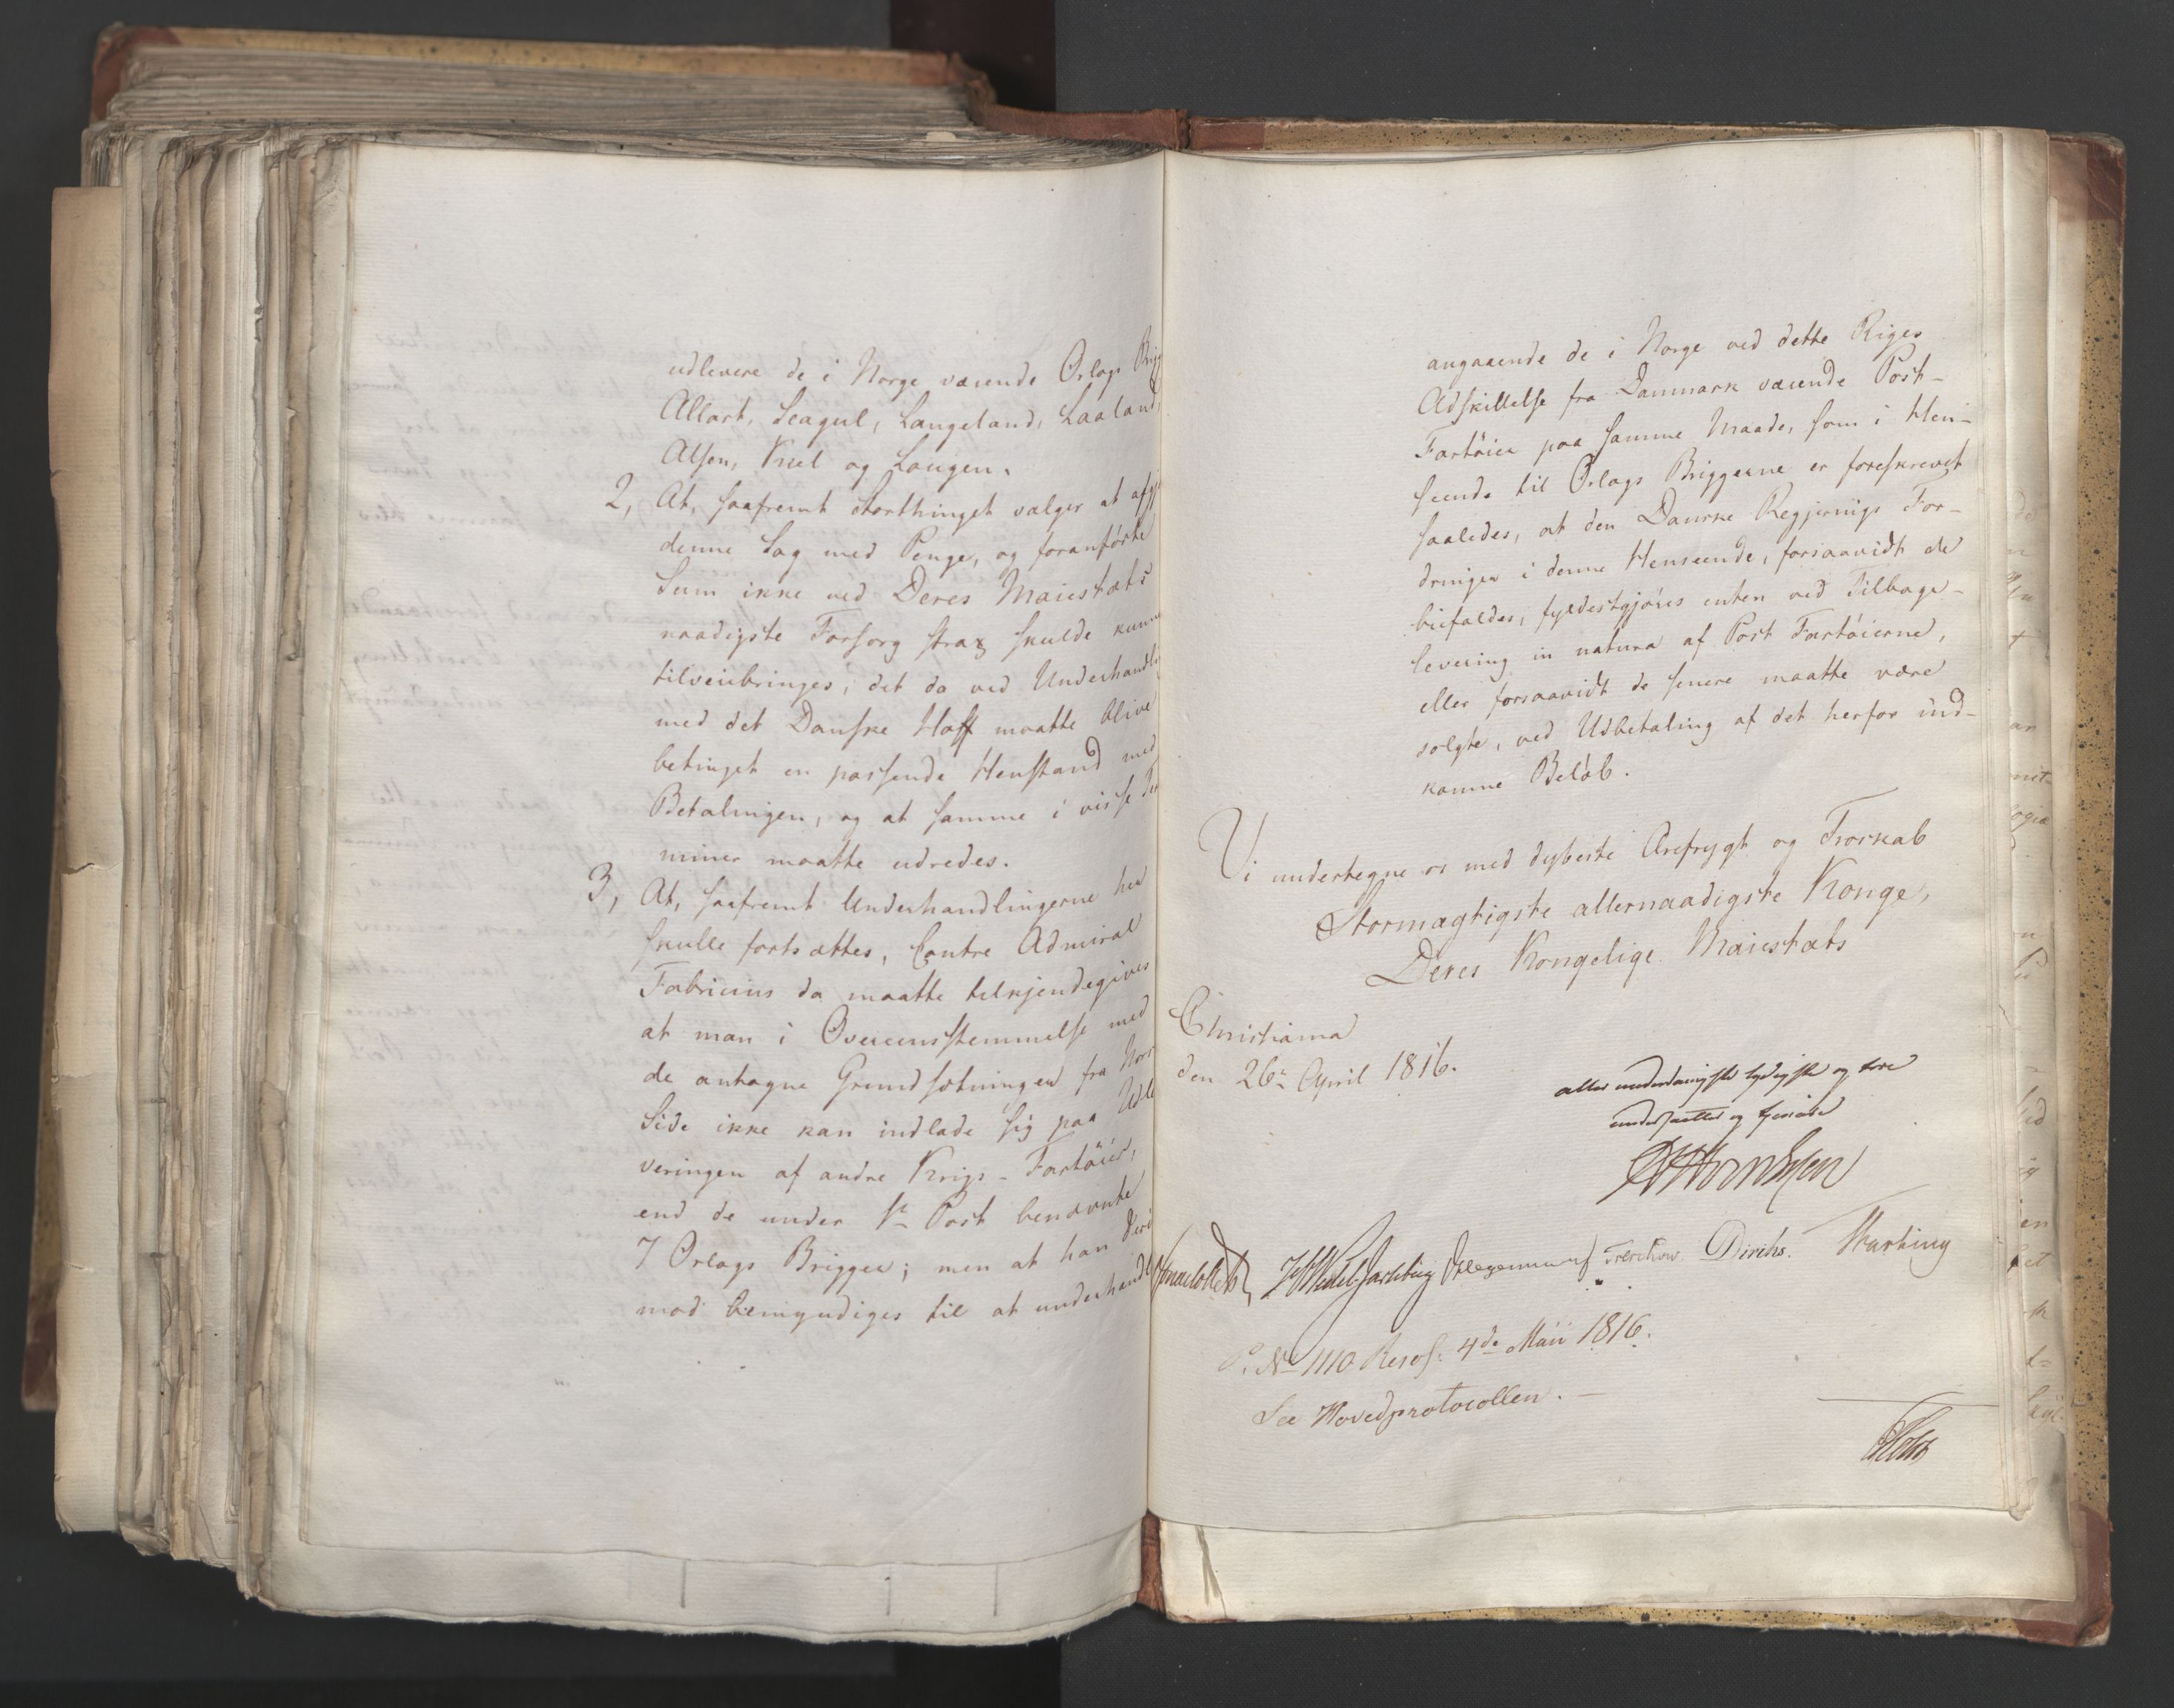 udlevere de i Norge værende Orlogs Brig
Allart, Seagul, Langeland, Laaland,
Alsen, Kiel og Lougen.
2, At, saafremt Storthinget vælger at afgj
denne Sag med Penge, og foranførte
Sum ikke ved Deres Maiestæts
naadigste Forsorg strax skulde kunne
tilveiebringes, det da ved Underhandli
med det Danske Hoff maatte blive
betinget en passende Henstand med
Betalingen, og at samme i visse Ter
miner maatte udredes.
3, At, saafremt Underhandlingerne her
skulle fortsættes, Contre Admiral
Fabricius da maatte tilkjendegives
at man i Overeensstemmelse med
de antagne Grundsætninger fra Nor
Side ikke kan indlade sig paa Udle
veringen af andre Krigs-Fartöier,
end de under 1ste Post benævnte
7 Orlogs Brigger; men at han der
mod bemyndiges til at underhandle
angaaende de i Norge ved dette Riges
Adskillelse fra Danmark værende Post-
Fartöier paa samme Maade, som i Hen-
seende til Orlogs Briggerne er foreskrevet
saaledes, at den Danske Regjerings For-
dringer i denne Henseende, forsaavidt de
biefaldes, fyldestgjöres enten ved Tilbage-
levering in natura af Post Fartöierne,
eller forsaavidt de senere maatte være
solgte, ved Udbetaling af det herfor ind-
komne Belöb.
Vi undertegne os med dybeste Ærefrygt og Troskab
Stormægtigste allernaadigste Konge,
Deres Kongelige Maiestæts
Christiania
den 26de April 1816.
allerunderdanigste lydigste og troe
undersaatter og tjenere
Sommerfeldt JHWedel Jarlsberg Treschow Diriks. Motzfeldt
P. No 1110. Resol: 4de Maii 1816.
See Hovedprotocollen. —
Holst